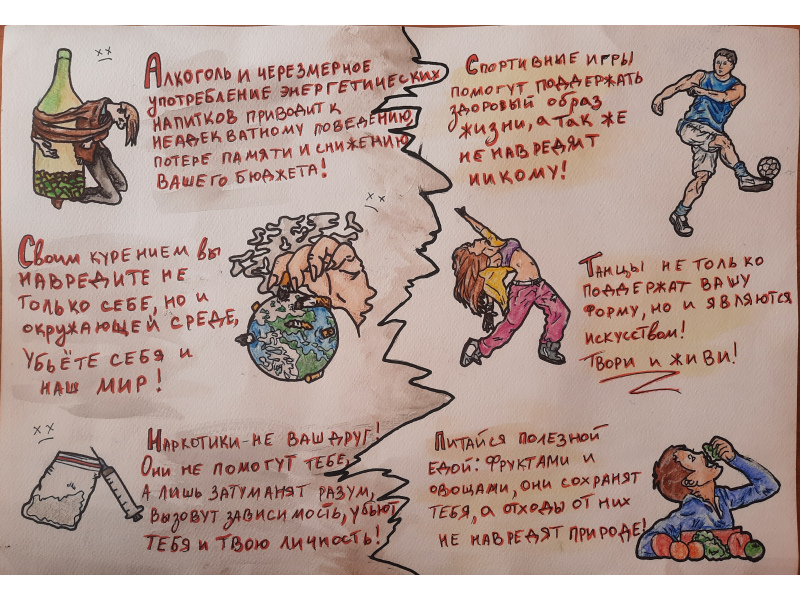 Алкоголь и черезмерное
употребление энергетических
напитков приводит к
неадекватному поведению,
потере памяти и снижению
вашего бюджета!
Своим курением вы
навредите не
только себе, но и
окружающей среде,
убьёте себя и
наш мир!
Наркотики - не ваш друг!
Они не помогут тебе,
а лишь затуманят разум,
вызовут зависимость, убьют
тебя и твою личность!
Спортивные игры
помогут поддержать
здоровый образ
жизни, а так же
не навредят
никому!
Танцы не только
поддержат вашу
форму, но и являются
искусством!
Твори и живи!
Питайся полезной
едой: фруктами и
овощами, они сохранят
тебя, а отходы от них
не навредят природе!